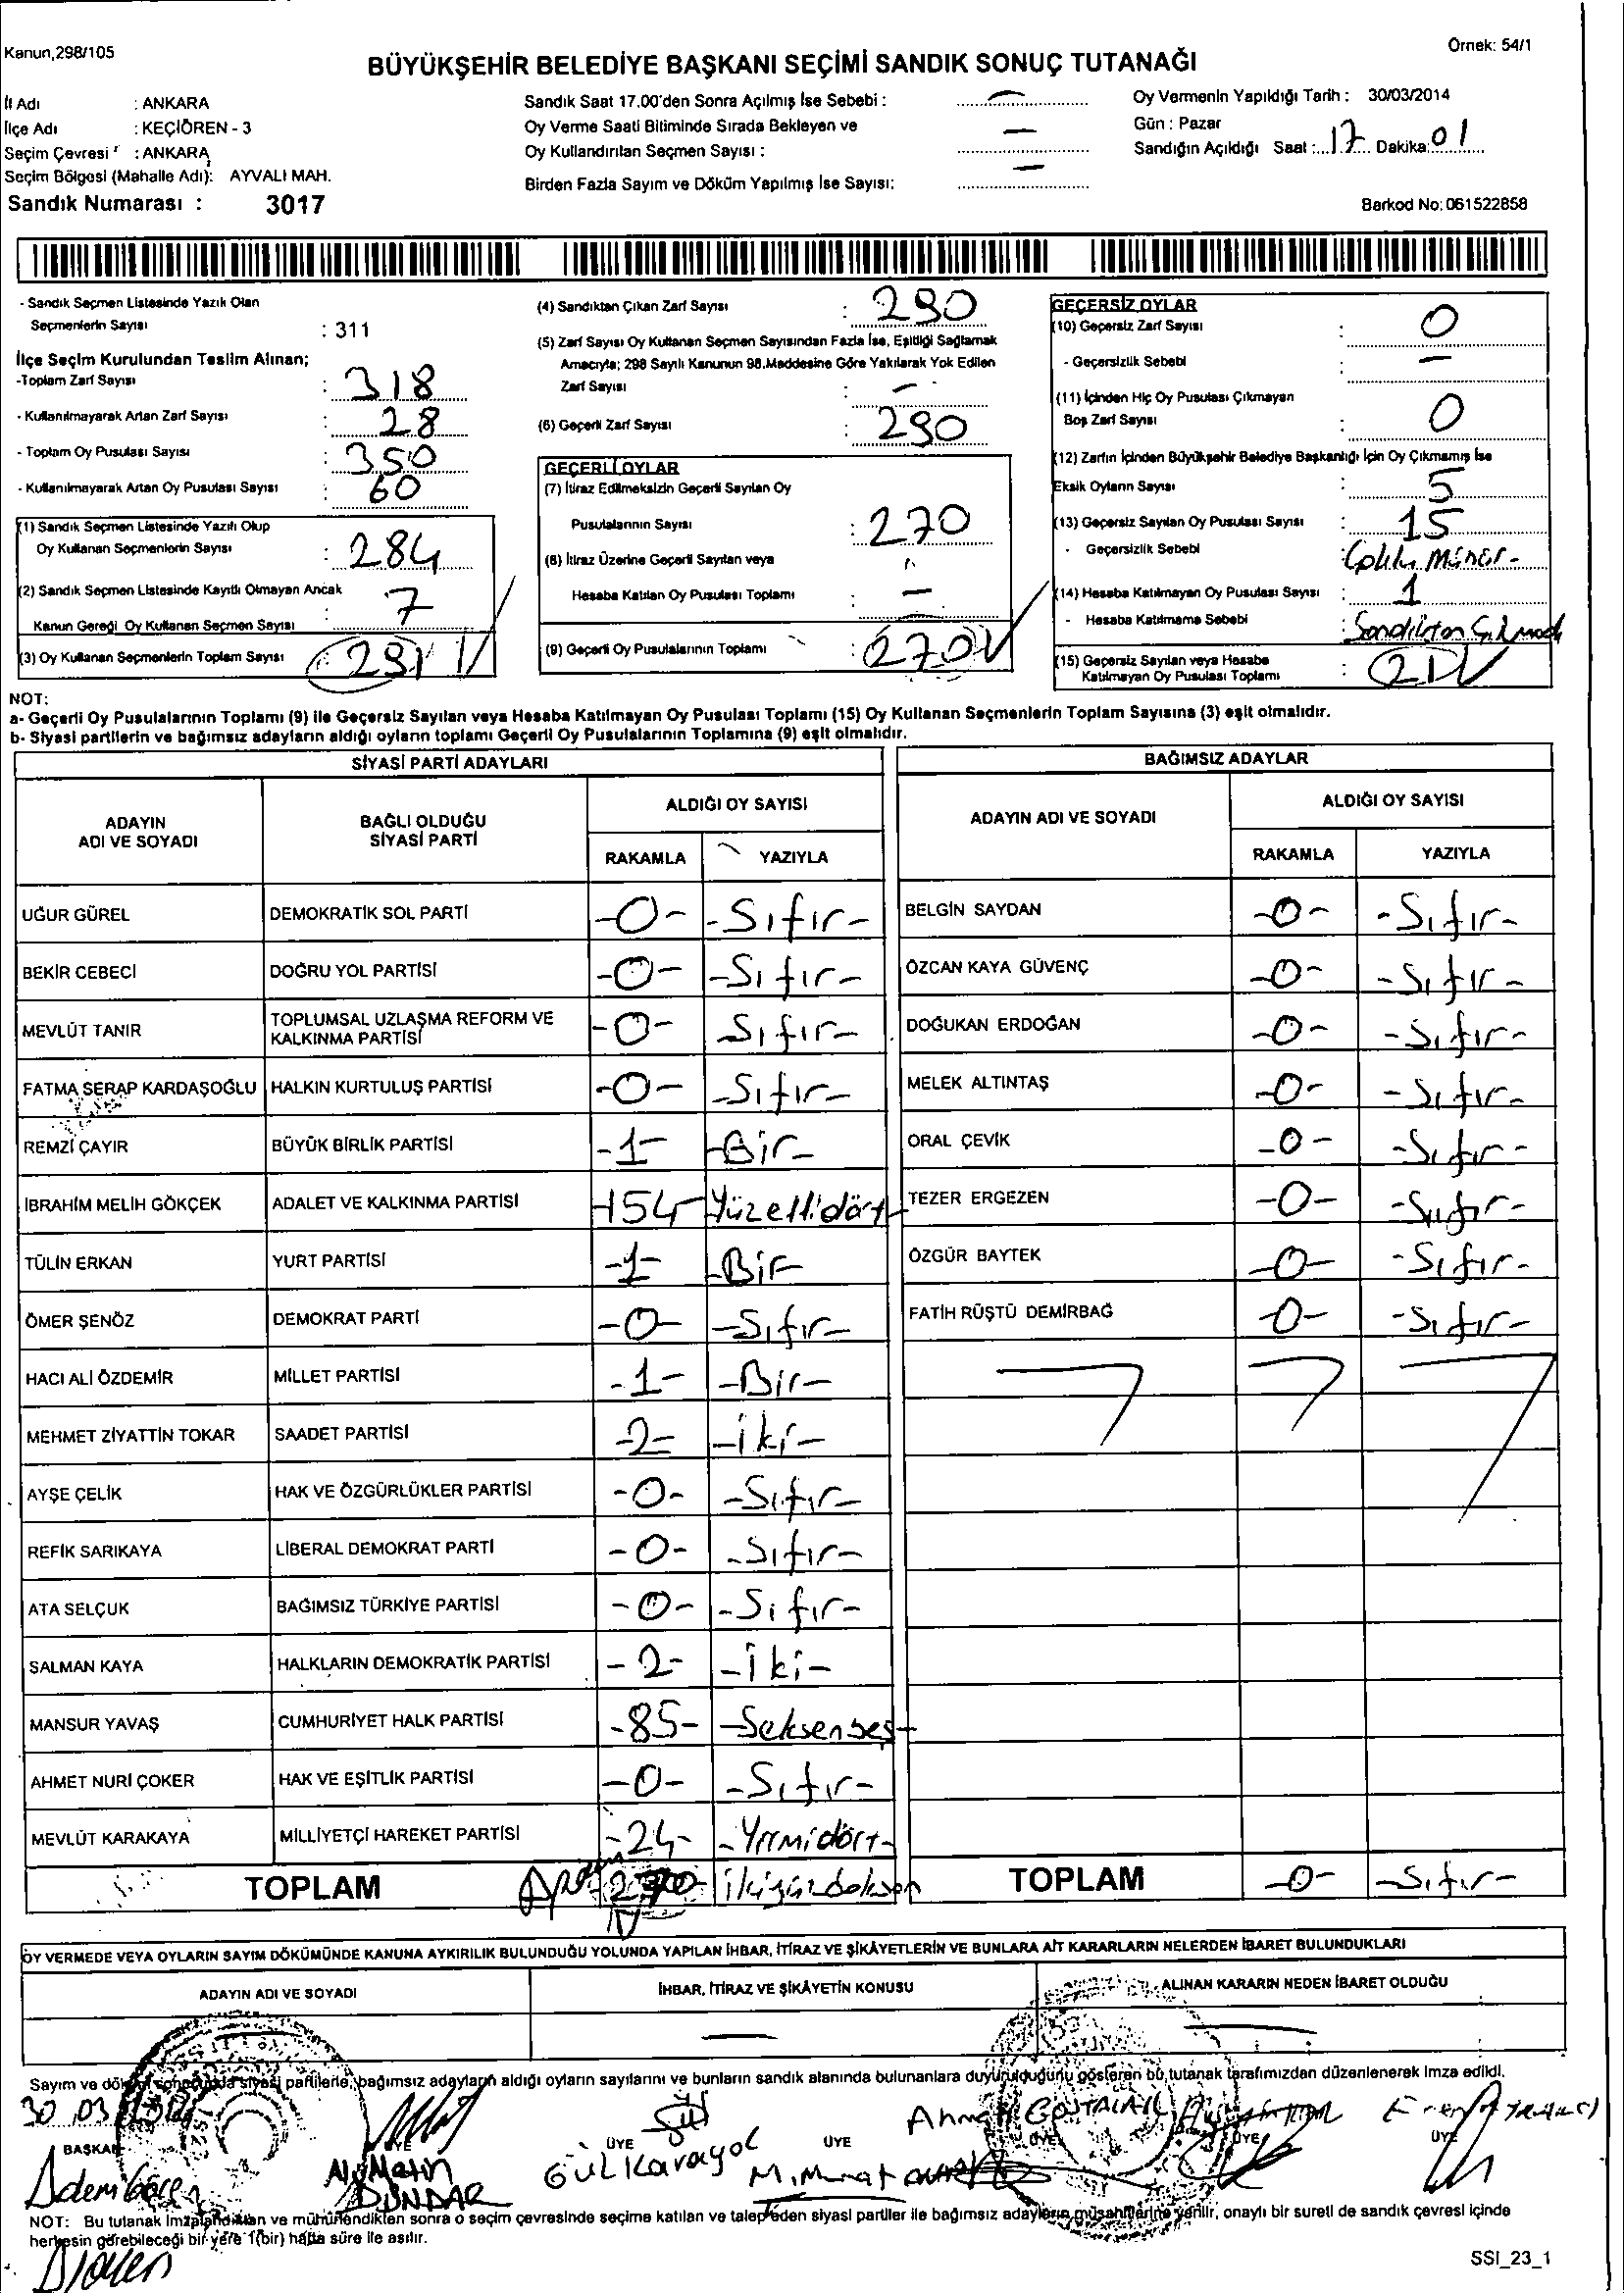 Kanun,298/105
Örnek: 54/1
BÜYÜKŞEHİR BELEDİYE BAŞKANI SEÇİMİ SANDIK SONUÇ TUTANAĞI
İl Adı : ANKARA
İlçe Adı : KEÇİÖREN - 3
Seçim Çevresi : ANKARA
Seçim Bölgesi (Mahalle Adı): AYVALI MAH.
Sandık Numarası : 3017
Sandık Saat 17.00'den Sonra Açılmış İse Sebebi : —
Oy Verme Saati Bitiminde Sırada Bekleyen ve
Oy Kullandırılan Seçmen Sayısı : —
Birden Fazla Sayım ve Döküm Yapılmış İse Sayısı: —
Oy Vermenin Yapıldığı Tarih : 30/03/2014
Gün : Pazar
Sandığın Açıldığı Saat :...17... Dakika:01
Barkod No: 061522858
- Sandık Seçmen Listesinde Yazılı Olan
Seçmenlerin Sayısı : 311
İlçe Seçim Kurulundan Teslim Alınan;
-Toplam Zarf Sayısı : 318
- Kullanılmayarak Artan Zarf Sayısı : 28
- Toplam Oy Pusulası Sayısı : 350
- Kullanılmayarak Artan Oy Pusulası Sayısı : 60
(1) Sandık Seçmen Listesinde Yazılı Olup
Oy Kullanan Seçmenlerin Sayısı : 284
(2) Sandık Seçmen Listesinde Kayıtlı Olmayan Ancak
Kanun Gereği Oy Kullanan Seçmen Sayısı : 7
(3) Oy Kullanan Seçmenlerin Toplam Sayısı : 291
(4) Sandıktan Çıkan Zarf Sayısı : 290
(5) Zarf Sayısı Oy Kullanan Seçmen Sayısından Fazla İse, Eşitliği Sağlamak
Amacıyla; 298 Sayılı Kanunun 98.Maddesine Göre Yakılarak Yok Edilen
Zarf Sayısı : —
(6) Geçerli Zarf Sayısı : 290
GEÇERLİ OYLAR
(7) İtiraz Edilmeksizin Geçerli Sayılan Oy
Pusulalarının Sayısı : 270
(8) İtiraz Üzerine Geçerli Sayılan veya
Hesaba Katılan Oy Pusulası Toplamı : —
(9) Geçerli Oy Pusulalarının Toplamı : 270
GEÇERSİZ OYLAR
(10) Geçersiz Zarf Sayısı : 0
- Geçersizlik Sebebi : —
(11) İçinden Hiç Oy Pusulası Çıkmayan
Boş Zarf Sayısı : 0
(12) Zarfın İçinden Büyükşehir Belediye Başkanlığı İçin Oy Çıkmamış İse
Eksik Oyların Sayısı : 5
(13) Geçersiz Sayılan Oy Pusulası Sayısı : 15
- Geçersizlik Sebebi :
(14) Hesaba Katılmayan Oy Pusulası Sayısı : 1
- Hesaba Katılmama Sebebi : Sandıktan
(15) Geçersiz Sayılan veya Hesaba
Katılmayan Oy Pusulası Toplamı : 21
NOT:
a- Geçerli Oy Pusulalarının Toplamı (9) ile Geçersiz Sayılan veya Hesaba Katılmayan Oy Pusulası Toplamı (15) Oy Kullanan Seçmenlerin Toplam Sayısına (3) eşit olmalıdır.
b- Siyasi partilerin ve bağımsız adayların aldığı oyların toplamı Geçerli Oy Pusulalarının Toplamına (9) eşit olmalıdır.
SİYASİ PARTİ ADAYLARI
ADAYIN ADI VE SOYADI
BAĞLI OLDUĞU SİYASİ PARTİ
ALDIĞI OY SAYISI
RAKAMLA YAZIYLA
UĞUR GÜREL DEMOKRATİK SOL PARTİ -0- -Sıfır-
BEKİR CEBECİ DOĞRU YOL PARTİSİ -0- -Sıfır-
MEVLÜT TANIR TOPLUMSAL UZLAŞMA REFORM VE KALKINMA PARTİSİ -0- -Sıfır-
FATMA SERAP KARDAŞOĞLU HALKIN KURTULUŞ PARTİSİ -0- -Sıfır-
REMZİ ÇAYIR BÜYÜK BİRLİK PARTİSİ -1- -Bir-
İBRAHİM MELİH GÖKÇEK ADALET VE KALKINMA PARTİSİ -154- Yüzellidört-
TÜLİN ERKAN YURT PARTİSİ -1- -Bir-
ÖMER ŞENÖZ DEMOKRAT PARTİ -0- -Sıfır-
HACI ALİ ÖZDEMİR MİLLET PARTİSİ -1- -Bir-
MEHMET ZİYATTİN TOKAR SAADET PARTİSİ -2- -iki-
AYŞE ÇELİK HAK VE ÖZGÜRLÜKLER PARTİSİ -0- -Sıfır-
REFİK SARIKAYA LİBERAL DEMOKRAT PARTİ -0- -Sıfır-
ATA SELÇUK BAĞIMSIZ TÜRKİYE PARTİSİ -0- -Sıfır-
SALMAN KAYA HALKLARIN DEMOKRATİK PARTİSİ -2- -iki-
MANSUR YAVAŞ CUMHURİYET HALK PARTİSİ -85- -Seksenbeş-
AHMET NURİ ÇOKER HAK VE EŞİTLİK PARTİSİ -0- -Sıfır-
MEVLÜT KARAKAYA MİLLİYETÇİ HAREKET PARTİSİ -24- -Yirmidört-
TOPLAM 270
BAĞIMSIZ ADAYLAR
ADAYIN ADI VE SOYADI
ALDIĞI OY SAYISI
RAKAMLA YAZIYLA
BELGİN SAYDAN -0- -Sıfır-
ÖZCAN KAYA GÜVENÇ -0- -Sıfır-
DOĞUKAN ERDOĞAN -0- -Sıfır-
MELEK ALTINTAŞ -0- -Sıfır-
ORAL ÇEVİK -0- -Sıfır-
TEZER ERGEZEN -0- -Sıfır-
ÖZGÜR BAYTEK -0- -Sıfır-
FATİH RÜŞTÜ DEMİRBAĞ -0- -Sıfır-
TOPLAM -0- -Sıfır-
OY VERMEDE VEYA OYLARIN SAYIM DÖKÜMÜNDE KANUNA AYKIRILIK BULUNDUĞU YOLUNDA YAPILAN İHBAR, İTİRAZ VE ŞİKÂYETLERİN VE BUNLARA AİT KARARLARIN NELERDEN İBARET BULUNDUKLARI
ADAYIN ADI VE SOYADI
İHBAR, İTİRAZ VE ŞİKÂYETİN KONUSU
ALINAN KARARIN NEDEN İBARET OLDUĞU
Sayım ve döküm sonucunda siyasi partilerle, bağımsız adayların aldığı oyların sayılarını ve bunların sandık alanında bulunanlara duyurulduğunu gösteren bu tutanak tarafımızdan düzenlenerek imza edildi.
30 03
BAŞKAN ÜYE ÜYE ÜYE ÜYE ÜYE
Metin DÜNDAR
Gül Karayol
M. Murat
Ahmet
NOT: Bu tutanak imzalandıktan ve mühürlendikten sonra o seçim çevresinde seçime katılan ve talep eden siyasi partiler ile bağımsız adayların müşahitlerine verilir, onaylı bir sureti de sandık çevresi içinde
herkesin görebileceği bir yere 1(bir) hafta süre ile asılır.
SSI_23_1